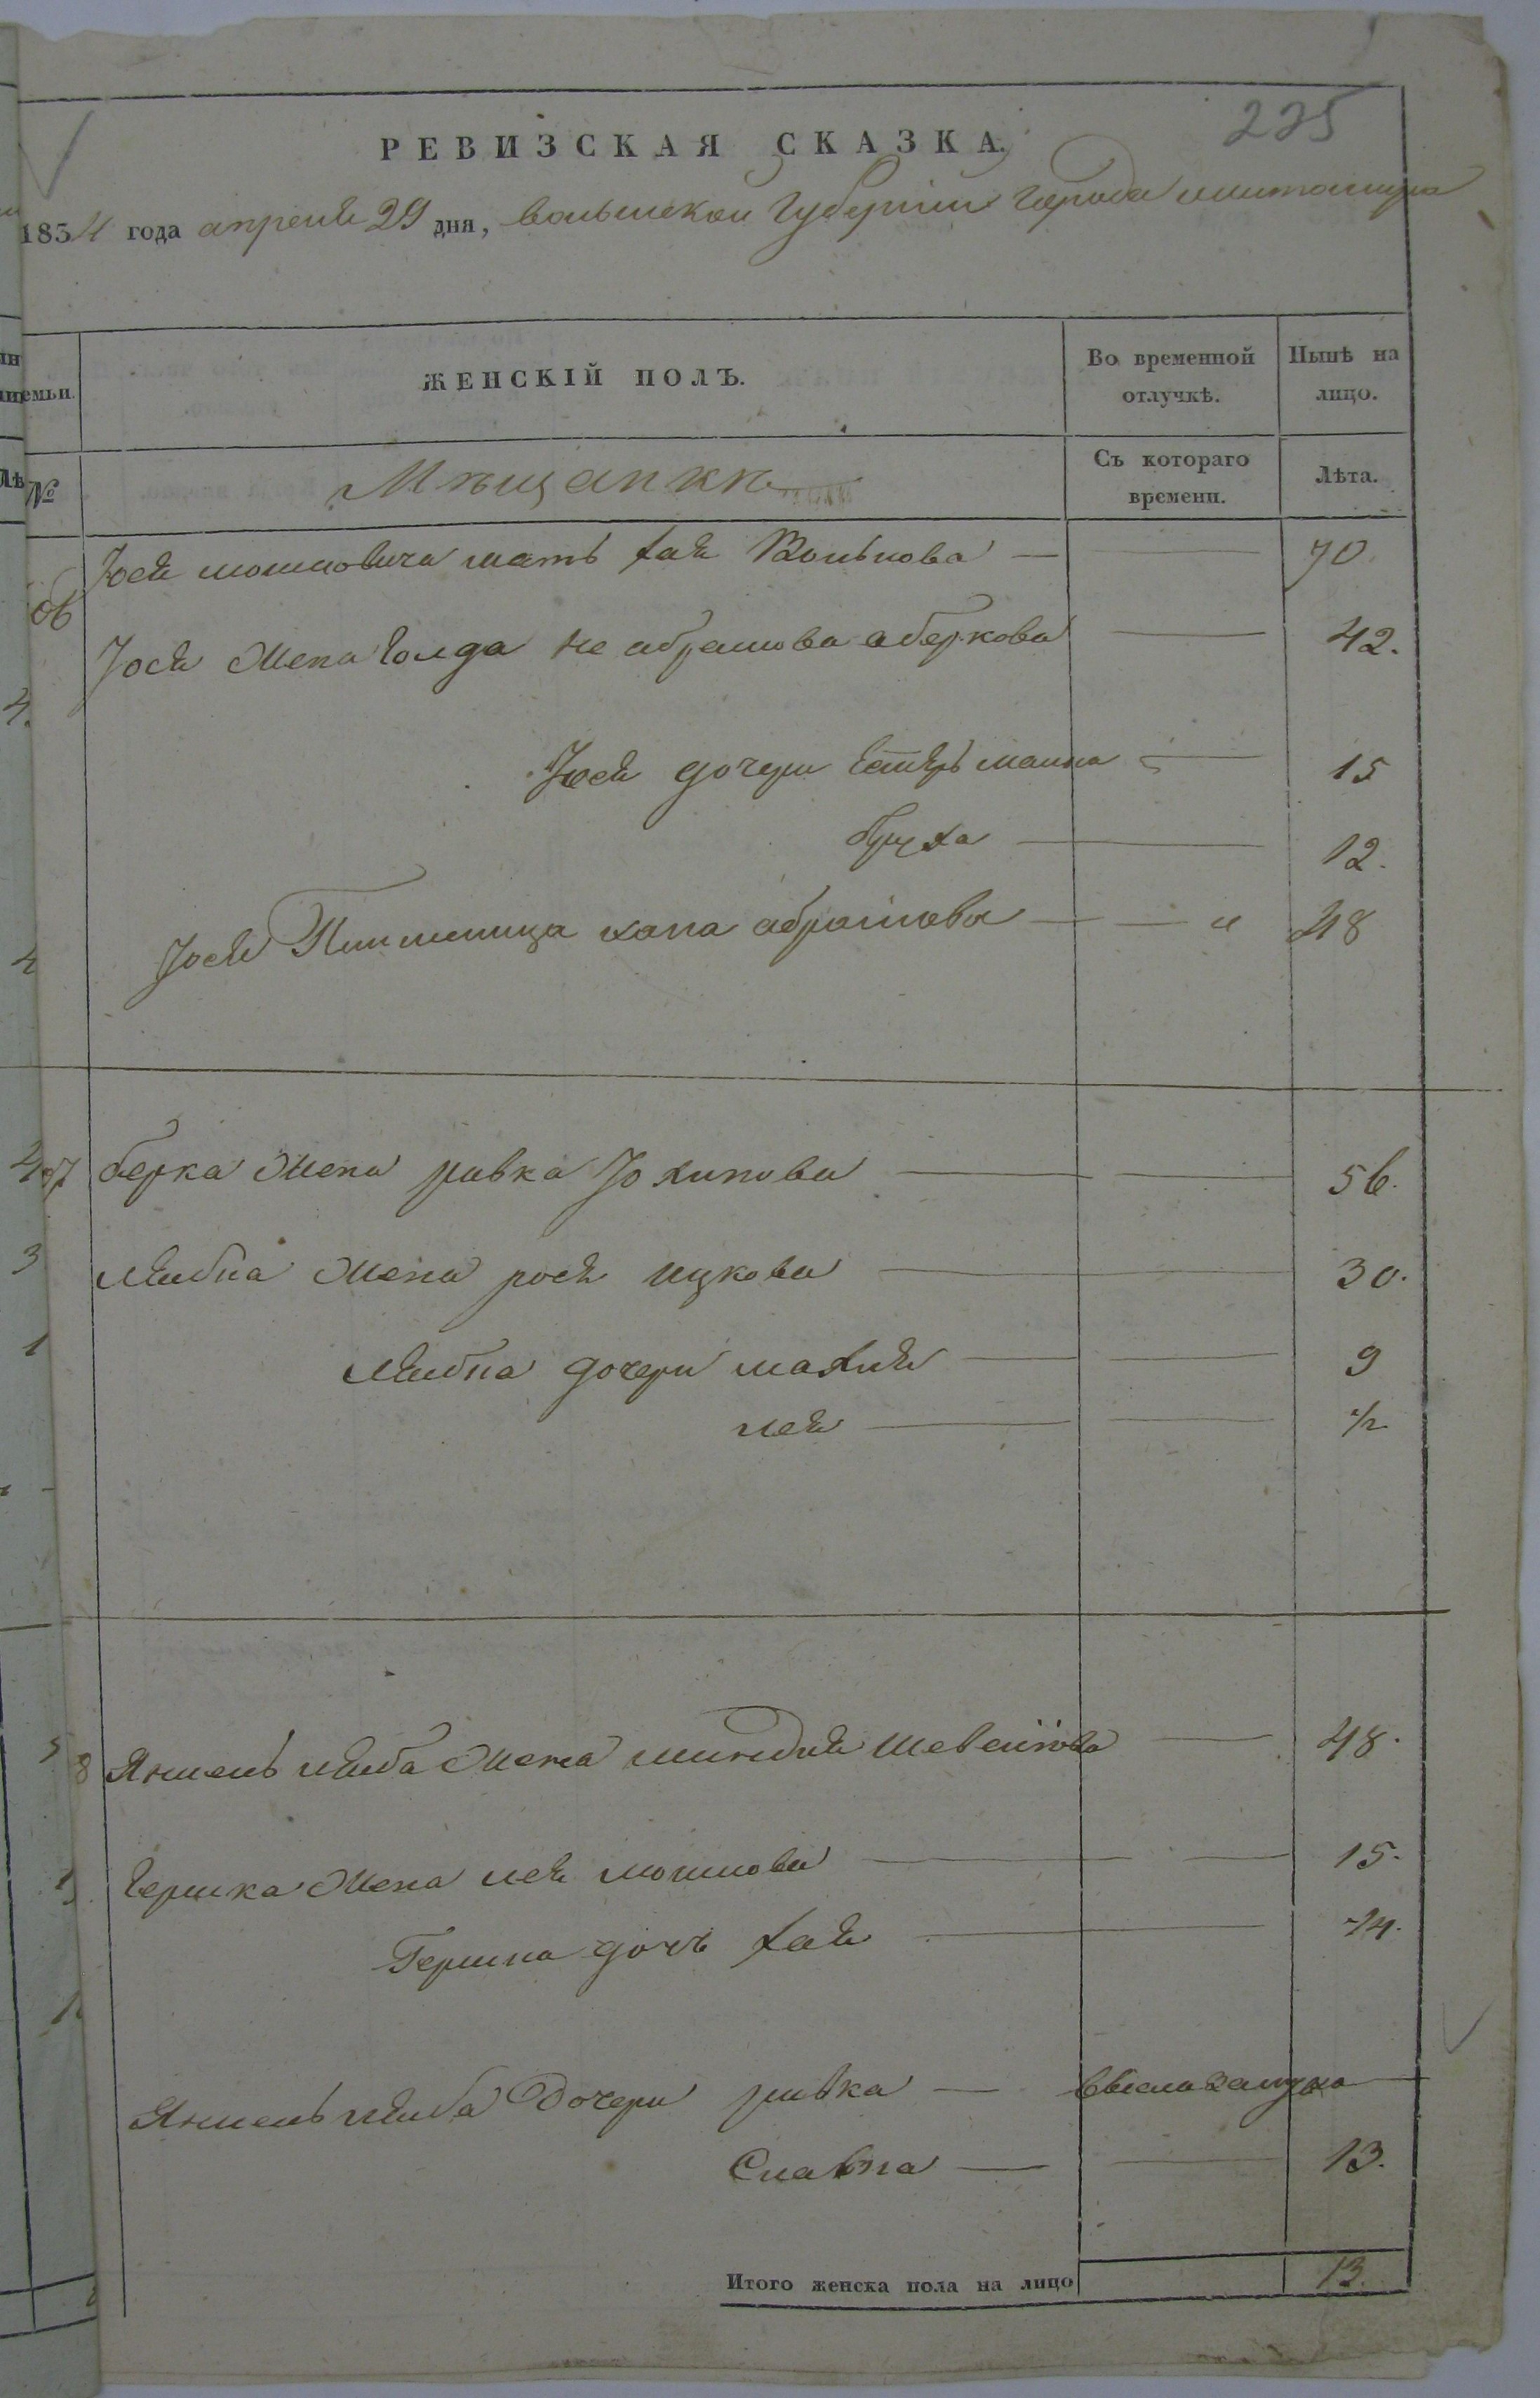 225
РЕВИЗСКАЯ СКАЗКА.
1854 года апреля 29 дня, волынской Губернии Города житомира
семьи.
ЖЕНСКІЙ ПОЛЪ.
Во временной отлучкѣ.
Нынѣ на лицо.
№
Мѣщанкѣ
Съ котораго времени.
Лѣта.
Іося мошковича мать хая Волькова — — 70.
Іося жена Голда не абрамова а беркова — 42.
Іося дочери Естерь малка — 15
бруха — 12.
Іося хана абрамова — — 48
берка жена ривка Іохипова — — 56.
лейбка жена рося ицкова — 30.
лейбка дочери махля — — 9
лея — — 1/2
8 Янкель лейба жена миндля Шевелиова — 48.
Гершка жена лея мошкова — — 15.
Гершка дочь хая — 1/4.
Янкель лейба Дочери ривка — вышла замужъ
Славка — — 13.
Итого женска пола на лицо 13.